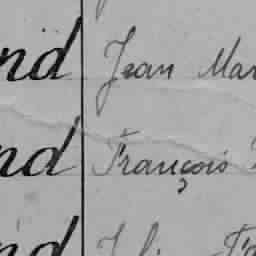 nd Jean Mar
nd François
nd